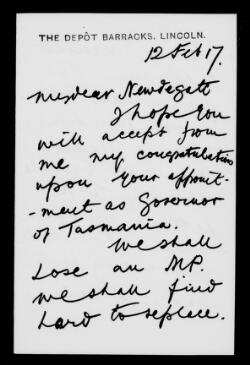 THE DEPÔT BARRACKS, LINCOLN.
12 Feb 17.
My dear Newdegate
I hope you
will accept from
me my congratulations
upon your appoint-
-ment as Governor
of Tasmania.
We shall
lose an M.P.
we shall find
hard to replace.